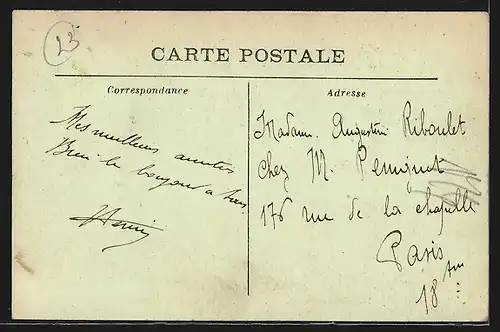 23
CARTE POSTALE
Correspondance
Mes meilleurs amitiés
Bien le bonjour a tous
Adresse
Madame Augustine Riboulet
chez M.
176 rue de la chapelle
Paris
18 Arr